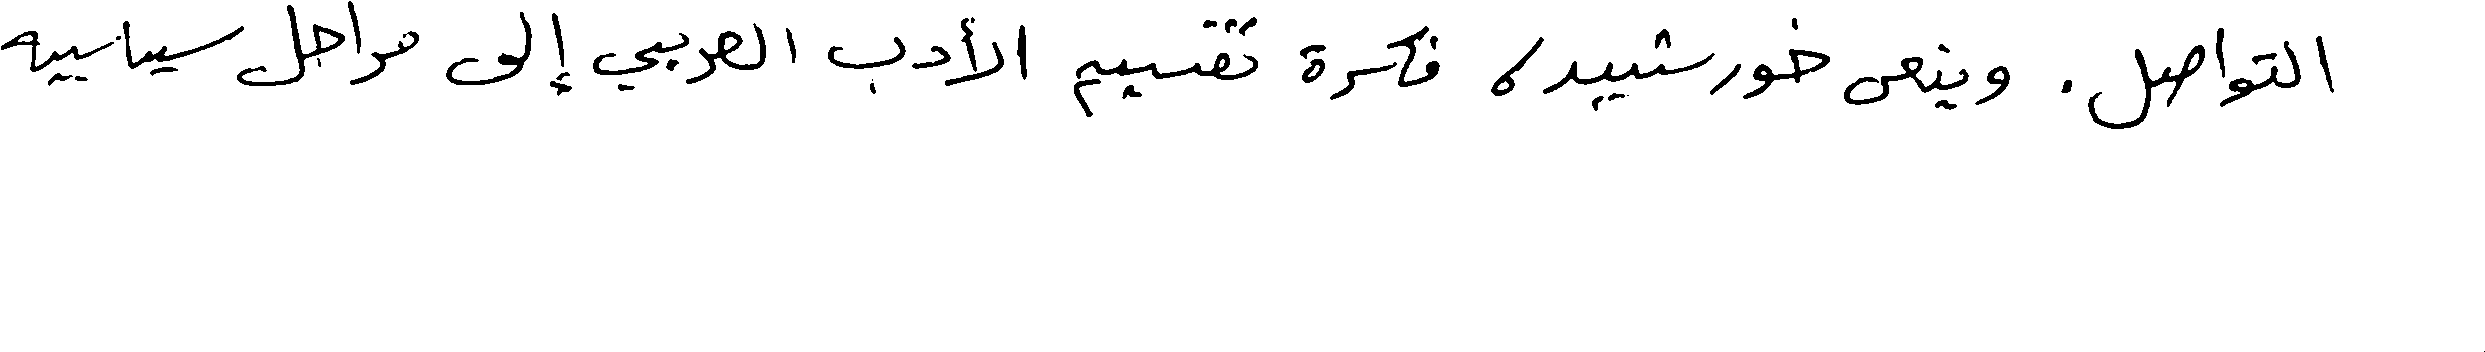 التواصل. وينعى خورشيد، فكرة تقسيم الأدب العربي إلى مراحل سياسيه